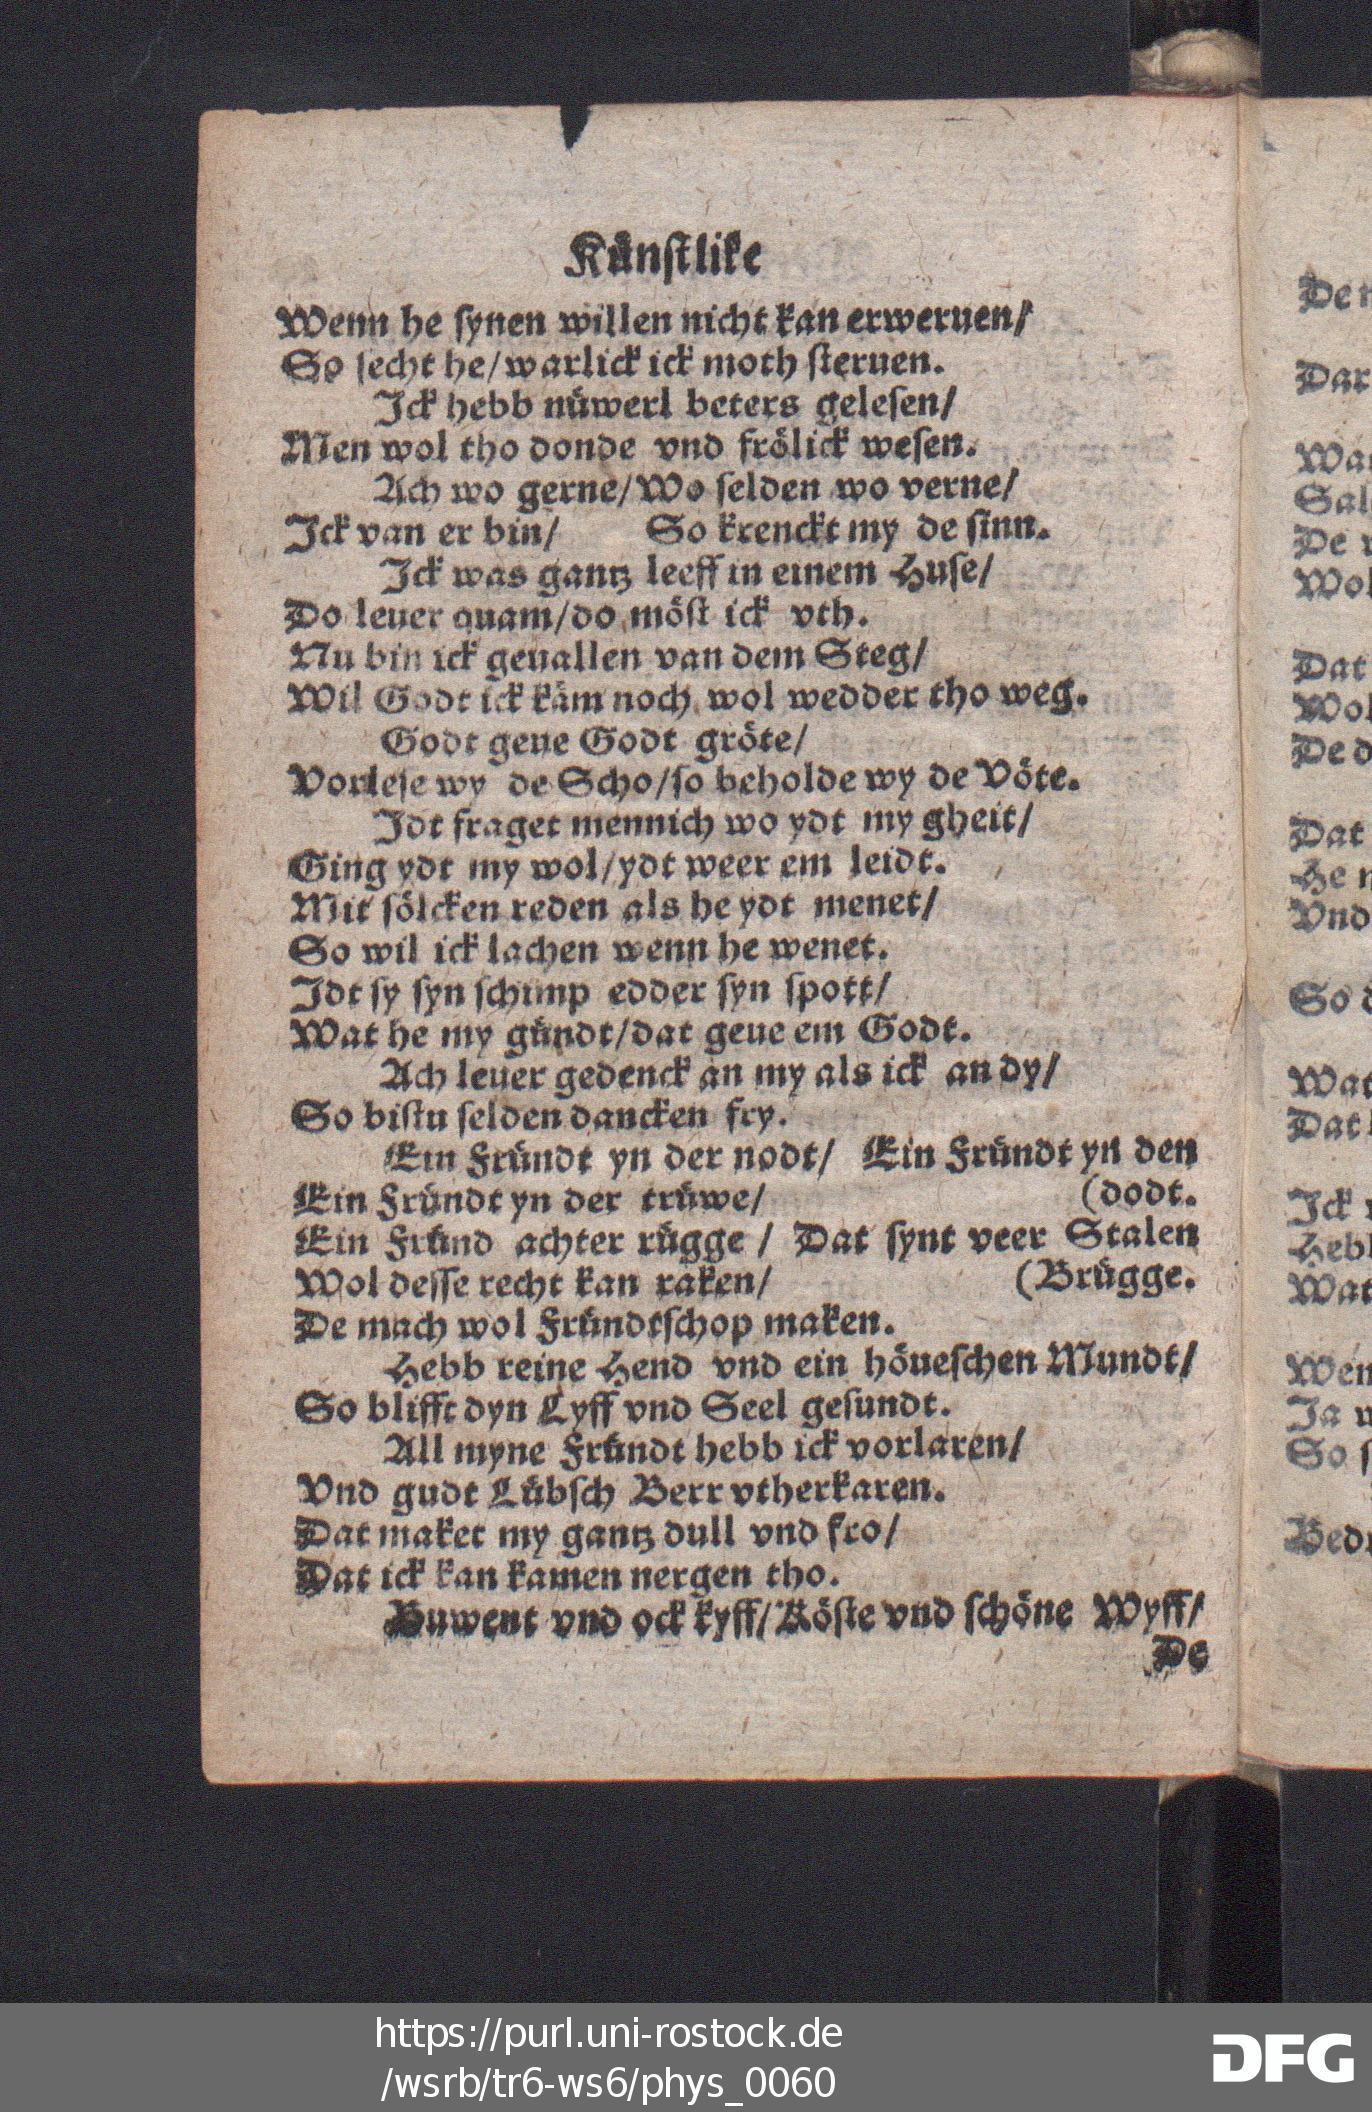 Künstlike
Wenn he synen willen nicht kan erweruen/
So secht he/warlick ick moth steruen.
Ick hebb nüwerl beters gelesen/
Men wol tho donde vnd frölick wesen.
Ach wo gerne/Wo selden wo verne/
Ick van er bin/ So krenckt my de sinn.
Ick was gantz leeff in einem Huse/
Do leuer quam/do möst ick vth.
Nu bin ick geuallen van dem Steg/
Wil Godt ick käm noch wol wedder tho weg.
Godt geue Godt gröte/
Vorlese wy de Scho/so beholde wy de Vöte.
Idt fraget mennich wo ydt my gheit/
Ging ydt my wol/ydt weer em leidt.
Mit sölcken reden als he ydt menet/
So wil ick lachen wenn he wenet.
Idt sy syn schimp edder syn spott/
Wat he my gündt/dat geue em Godt.
Ach leuer gedenck an my als ick an dy/
So bistu selden dancken fry.
Ein Fründt yn der nodt/ Ein Fründt yn den
Ein Fründt yn der trüwe/ (dodt.
Ein Fründ achter rügge / Dat synt veer Stalen
Wol desse recht kan raken/ (Brügge.
De mach wol Fründtschop maken.
Hebb reine Hend vnd ein höueschen Mundt/
So blifft dyn Lyff vnd Seel gesundt.
All myne Fründt hebb ick vorlaren/
Vnd gudt Lübsch Berr vtherkaren.
Dat maket my gantz dull vnd fro/
Dat ick kan kamen nergen tho.
Buwent vnd ock kyff/Köste vnd schöne Wyff/
De
De
Dar
Wa
Sal
De
Wol
Dat
Wol
De d
Dat
He
Vnd
So
Wat
Dat
Ick
Hebb
Wat
Wen
Ja
So
Bed
https://purl.uni-rostock.de
/wsrb/tr6-ws6/phys_0060
DFG